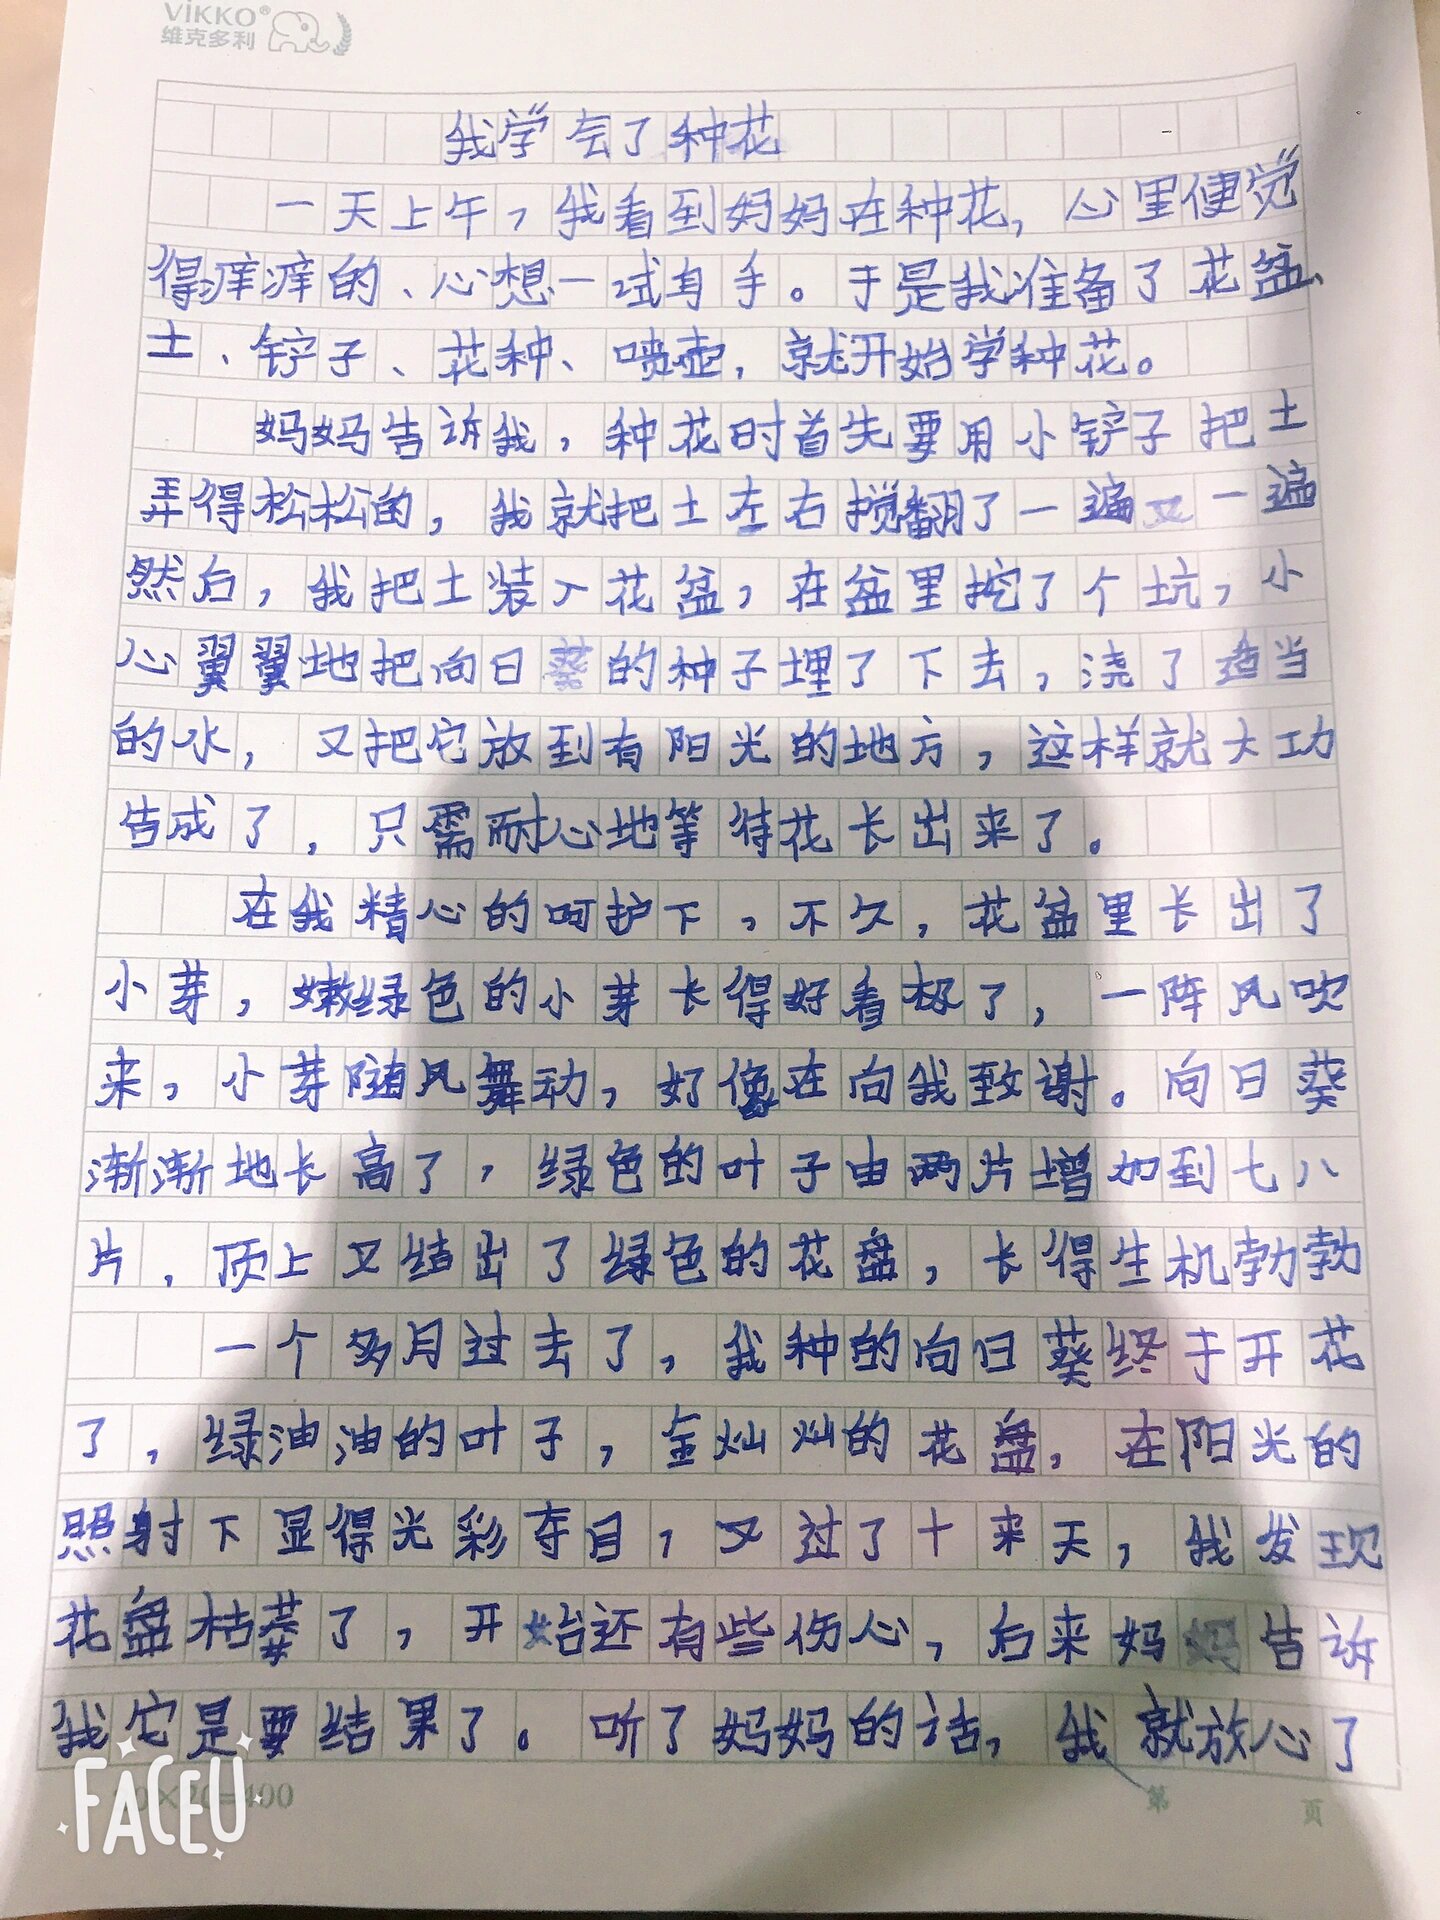 ViKKO®
维克多利
我学会了种花
一天上午，我看到妈妈在种花，心里便觉
得痒痒的、心想一试身手。于是我准备了花盆、
土、铲子、花种、喷壶，就开始学种花。
妈妈告诉我，种花时首先要用小铲子把土
弄得松松的，我就把土左右搅翻了一遍又一遍
然后，我把土装入花盆，在盆里挖了个坑，小
心翼翼地把向日葵的种子埋了下去，浇了适当
的水，又把它放到有阳光的地方，这样就大功
告成了，只需耐心地等待花长出来了。
在我精心的呵护下，不久，花盆里长出了
小芽，嫩绿色的小芽长得好看极了，一阵风吹
来，小芽随风舞动，好像在向我致谢。向日葵
渐渐地长高了，绿色的叶子由两片增加到七八
片，顶上又结出了绿色的花盘，长得生机勃勃
一个多月过去了，我种的向日葵终于开花
了，绿油油的叶子，金灿灿的花盘，在阳光的
照射下显得光彩夺目，又过了十来天，我发现
花盘枯萎了，开始还有些伤心，后来妈妈告诉
我它是要结果了。听了妈妈的话，我就放心了
20×20=400
第 页
FACEU